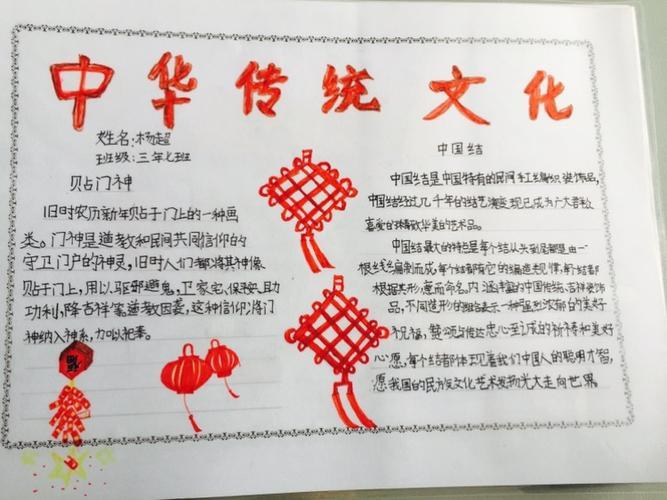 中华传统文化
姓名:杨超
班级:三年七班
贴门神
旧时农历新年贴于门上的一种画
类。门神是道教和民间共同信仰的
守卫门户的神灵,旧时人们都将其神像
贴于门上,用以驱邪避鬼,卫家宅、保平安、助
功利,降吉祥等,道教因袭,这种信仰,将门
神纳入神系,加以祀奉。
福
中国结
中国结是中国特有的民间手工编织装饰品,
中国结经过几千年的结艺演变,现已成为广大群众
喜爱的精致华美的艺术品。
中国结最大的特点是每个结从头到尾都是由一
根丝线编制而成,每个结都有它的编造规律,每个结都
根据其形,意而命名,内涵丰富的中国传统吉祥装饰
品,不同造形的 表示一种 浓郁的美好
祝福,赞颂与传达衷心至诚的祈祷和美好
心愿,每个结都体现着我们中国人的聪明才智,
愿我国的民族文化艺术发扬光大走向世界